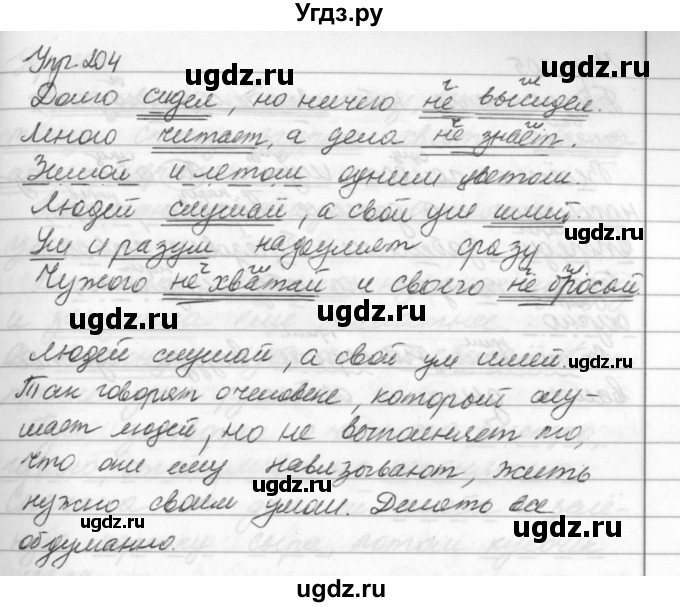 Угдз.ру
Упр. 204
Долго сидел, но ничего не высидел.
Много читает, а дела не знает.
Зимой и летом одним цветом.
Людей слушай, а свой ум имей.
Ум и разум надоумят сразу
Чужого не хватай и своего не бросай
Людей слушай, а свой ум имей.
Так говорят о человеке, который слу-
шает людей, но не выполняет то,
что они ему навязывают, жить
нужно своим умом. Делать все
обдуманно.
ugdz.ru
ugdz.ru
ugdz.ru
ugdz.ru
ugdz.ru
ugdz.ru
ugdz.ru
ugdz.ru
ugdz.ru
ugdz.ru
ugdz.ru
ugdz.ru
ugdz.ru